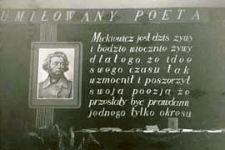 UMIŁOWANY POETA
Mickiewicz jest dziś żywy
i będzie wiecznie żywy
dlatego, że idee
swego czasu tak
uzmocnił i poszerzył
swoją poezją że
przestały być prawdami
jednego tylko okresu